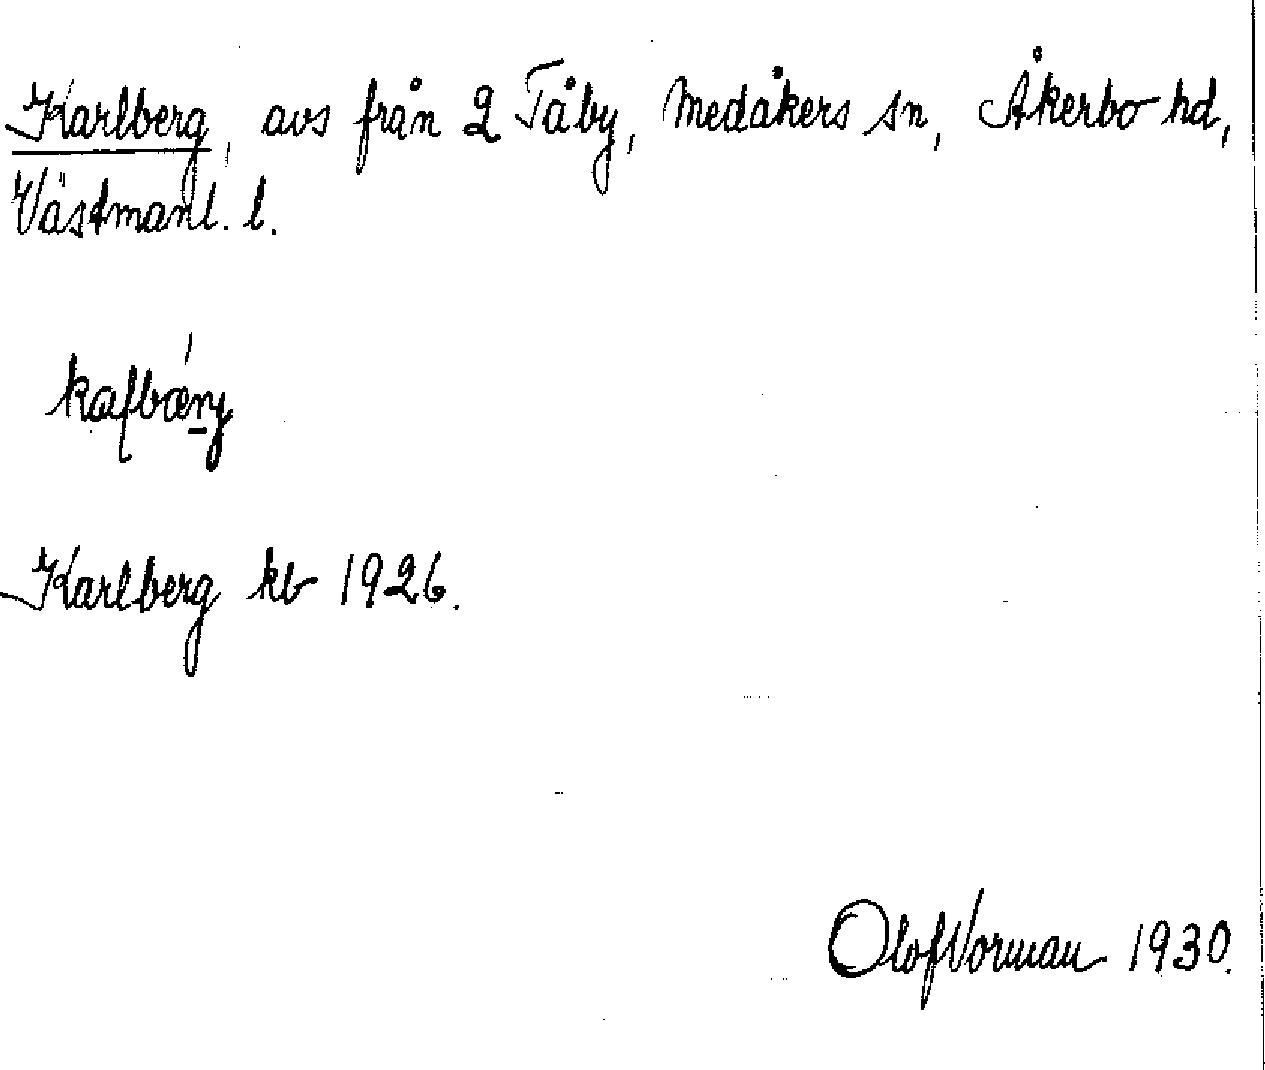 Karlberg, avs från 2 Tåby, Medåkers sn, Åkerbo hd,
Västmanl. l.
Karlberg kb 1926.
Olof Vorman 1930.